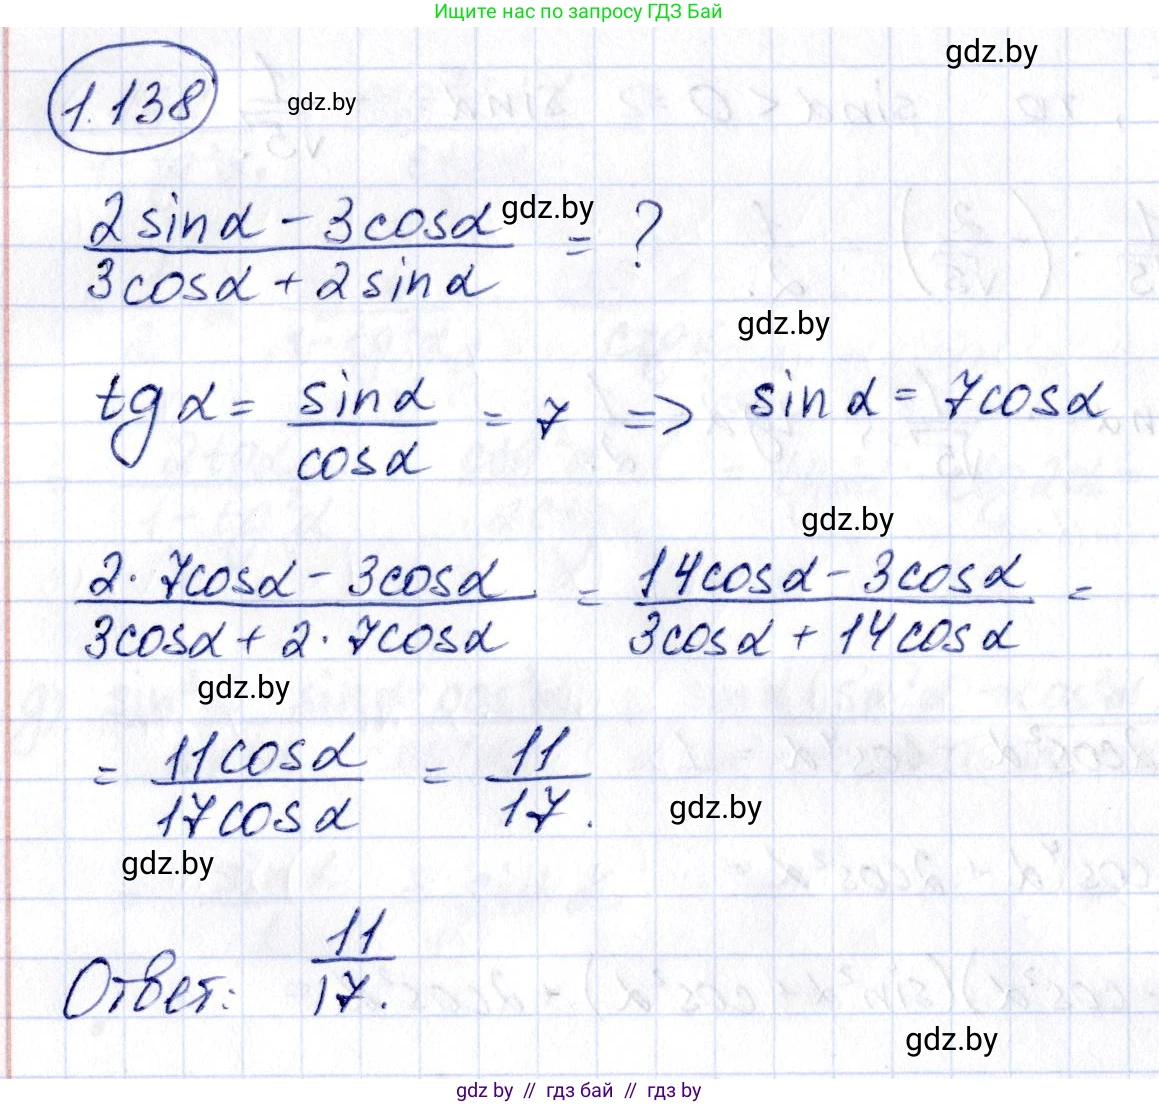 Ищите нас по запросу ГДЗ Бай
gdz.by
1.138 gdz.by
2sinα - 3cosα gdz.by
3cosα + 2sinα = ?
gdz.by
tg α = sinα / cosα = 7 => sin α = 7cosα
gdz.by
2· 7cosα - 3cosα / 3cosα + 2· 7cosα = 14cosα - 3cosα / 3cosα + 14cosα =
gdz.by
= 11cosα / 17cosα = 11 / 17.
gdz.by
gdz.by
Ответ: 11 / 17.
gdz.by
gdz by // гдз бай // гдз by